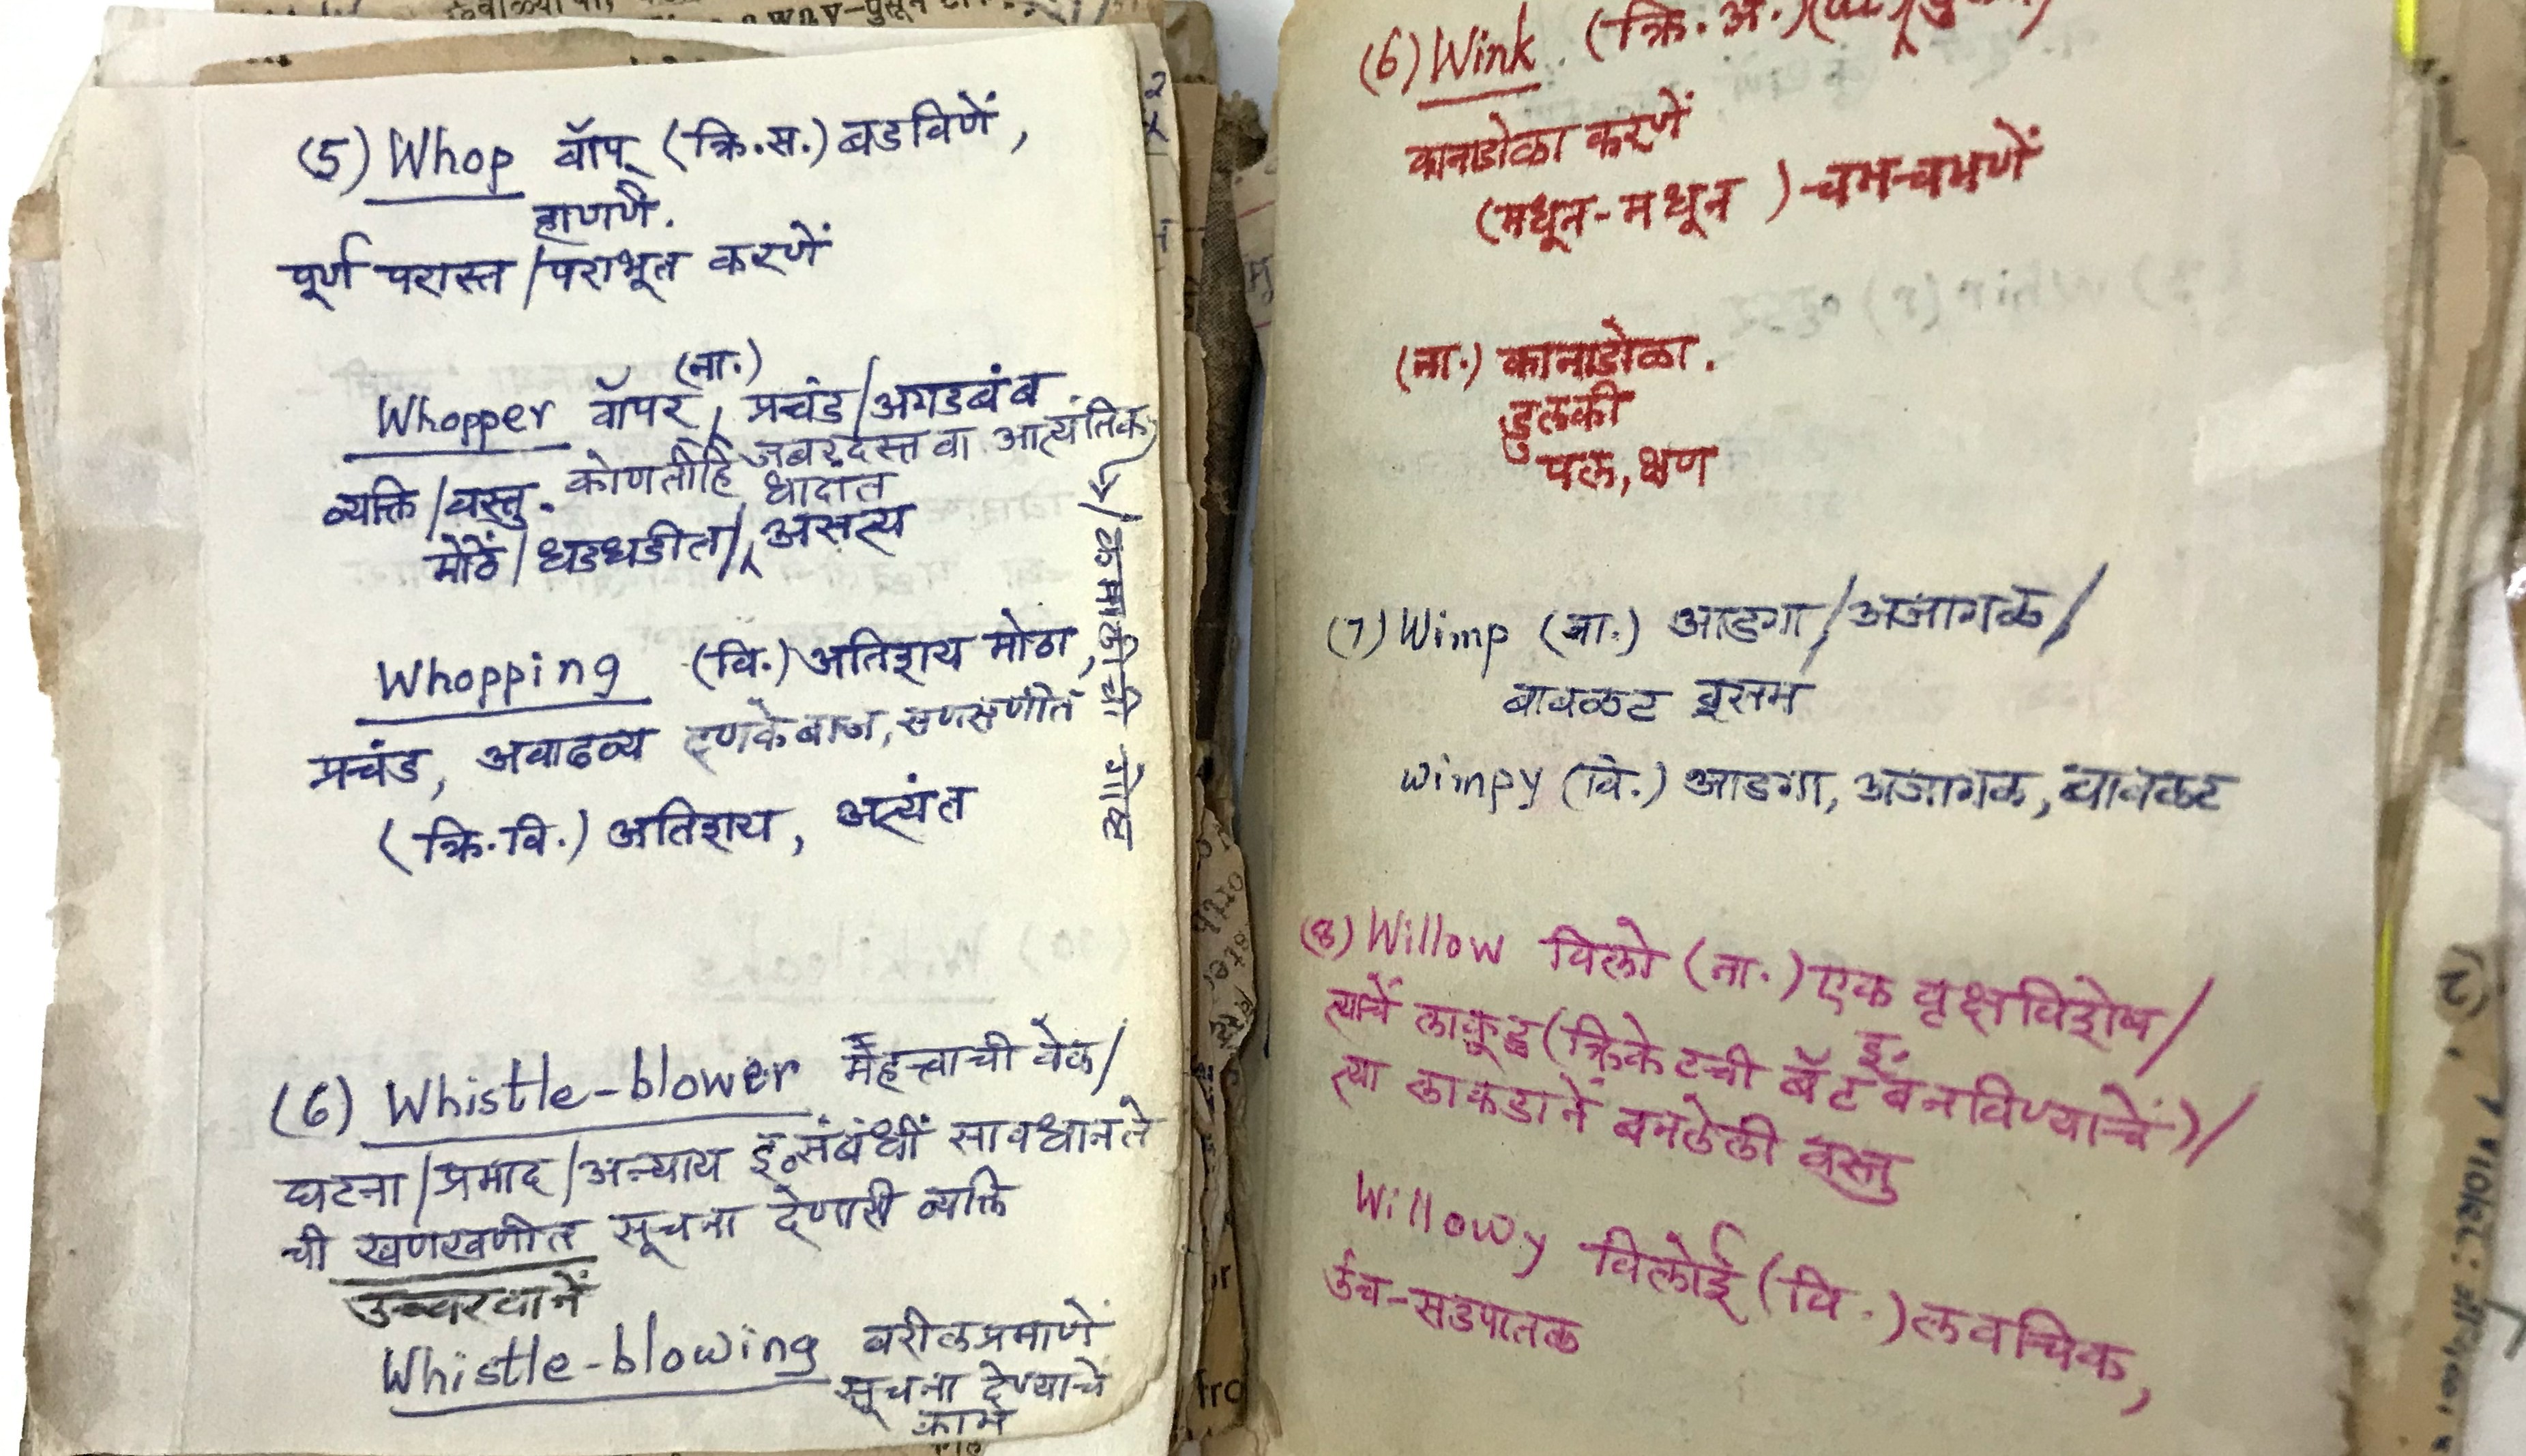 (5) Whop वॉप् (क्रि.स.) बडविणें,
हाणणें.
पूर्ण परास्त/पराभूत करणें
(ना.)
Whopper वॉपर, प्रचंड/अगडबंब
व्यक्ति/वस्तु. कोणतीहि जबरदस्त वा आत्यंतिक
धादांत
मोठें/धडधडीत/ असत्य
/कमालीची गोष्ट
Whopping (वि.) अतिशय मोठा,
प्रचंड, अवाढव्य दणकेबाज, सणसणीत
(क्रि.वि.) अतिशय, अत्यंत
(6) Whistle-blower महत्त्वाची वेळ/
घटना/प्रमाद/अन्याय इ.संबंधीं सावधानते
ची खणखणीत सूचना देणारी व्यक्ति
उच्चरवानें
Whistle-blowing वरीलप्रमाणें
सूचना देण्याचें
काम
(6) Wink (क्रि.अ.)
कानाडोळा करणें
(मधून-मधून) चमचमणें
(ना.) कानाडोळा.
डुलकी
पळ, क्षण
(7) Wimp (ना.) आडगा/अजागळ/
बावळट इसम
Wimpy (वि.) आडगा, अजागळ, बावळट
(8) Willow विलो (ना.) एक वृक्षविशेष/
त्याचें लाकूड (क्रिकेटची बॅट इ. बनविण्याचें)/
त्या लाकडानें बनलेली वस्तु
Willowy विलोई (वि.) लवचिक,
उंच-सडपातळ